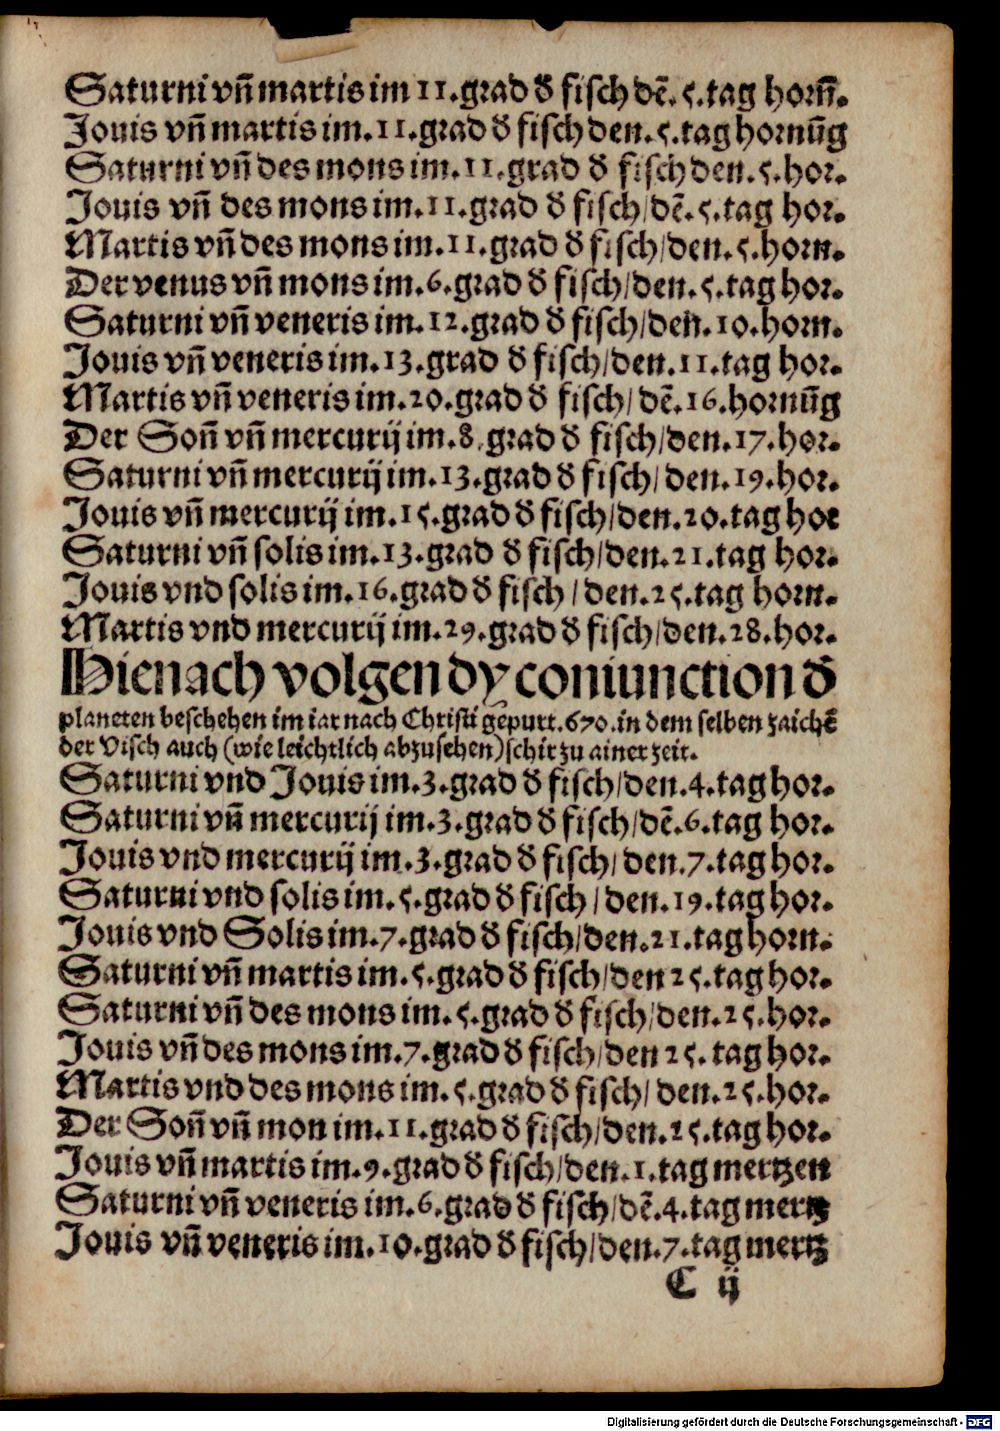 Saturni vn̄ martis im 11.grad d̕ fisch dē.5.tag horn̄.
Jouis vn̄ martis im.11.grad d̕ fisch den.5.tag hornūg
Saturni vn̄ des mons im.11.grad d̕ fisch den.5.hor.
Jouis vn̄ des mons im.11.grad d̕ fisch/dē.5.tag hor.
Martis vn̄ des mons im.11.grad d̕ fisch/den.5.horn.
Der venus vn̄ mons im.6.grad d̕ fisch/den.5.tag hor.
Saturni vn̄ veneris im.12.grad d̕ fisch/den.10.horn.
Jouis vn̄ veneris im.13.grad d̕ fisch/den.11.tag hor.
Martis vn̄ veneris im.20.grad d̕ fisch/dē.16.hornūg
Der Son̄ vn̄ mercurij im.8.grad d̕ fisch/den.17.hor.
Saturni vn̄ mercurij im.13.grad d̕ fisch/den.19.hor.
Jouis vn̄ mercurij im.15.grad d̕ fisch/den.20.tag hoe
Saturni vn̄ solis im.13.grad d̕ fisch/den.21.tag hor.
Jouis vnd solis im.16.grad d̕ fisch/den.25.tag horn.
Martis vnd mercurij im.29.grad d̕ fisch/den.28.hor.
Hienach volgen dy coniunction d̕
planeten beschehen im iar nach Christi gepurt.670.in dem selben zaichē
der Visch auch (wie leichtlich abzusehen)schir zu ainer zeit.
Saturni vnd Jouis im.3.grad d̕ fisch/den.4.tag hor.
Saturni vn̄ mercurij im.3.grad d̕ fisch/dē.6.tag hor.
Jouis vnd mercurij im.3.grad d̕ fisch/den.7.tag hor.
Saturni vnd solis im.5.grad d̕ fisch/den.19.tag hor.
Jouis vnd Solis im.7.grad d̕ fisch/den.21.tag horn.
Saturni vn̄ martis im.5.grad d̕ fisch/den 25.tag hor.
Saturni vn̄ des mons im.5.grad d̕ fisch/den.25.hor.
Jouis vn̄ des mons im.7.grad d̕ fisch/den 25.tag hor.
Martis vnd des mons im.5.grad d̕ fisch/den.25.hor.
Der Son̄ vn̄ mon im.11.grad d̕ fisch/den.25.tag hor.
Jouis vn̄ martis im.9.grad d̕ fisch/den.1.tag mertzen
Saturni vn̄ veneris im.6.grad d̕ fisch/dē.4.tag mertz
Jouis vn̄ veneris im.10.grad d̕ fisch/den.7.tag mertz
C ij
Digitalisierung gefördert durch die Deutsche Forschungsgemeinschaft - DFG